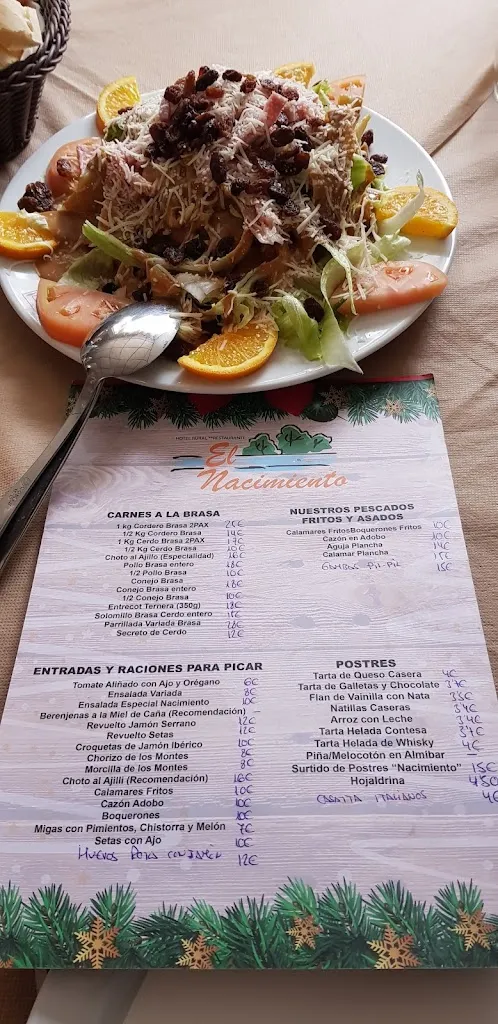 HOTEL RURAL **RESTAURANTE
El
Nacimiento
CARNES A LA BRASA
1 kg Cordero Brasa 2PAX
1/2 Kg Cordero Brasa 14€
1 Kg Cerdo Brasa 2PAX 17€
1/2 Kg Cerdo Brasa 10€
Choto al Ajillo (Especialidad) 16€
Pollo Brasa entero 18€
1/2 Pollo Brasa 10€
Conejo Brasa 18€
1/2 Conejo Brasa 10€
Entrecot Ternera (350g) 18€
Solomillo Brasa Cerdo entero 15€
Parrillada Variada Brasa 28€
Secreto de Cerdo 12€
NUESTROS PESCADOS
FRITOS Y ASADOS
Calamares FritosBoquerones Fritos 10€
Cazón en Adobo 10€
Aguja Plancha 14€
Calamar Plancha 15€
GAMBAS PIL-PIL 15€
ENTRADAS Y RACIONES PARA PICAR
Tomate Aliñado con Ajo y Orégano 6€
Ensalada Variada 8€
Ensalada Especial Nacimiento 10€
Berenjenas a la Miel de Caña (Recomendación)
Revuelto Jamón Serrano 12€
Revuelto Setas 12€
Croquetas de Jamón Ibérico 10€
Chorizo de los Montes 8€
Morcilla de los Montes 8€
Choto al Ajilli (Recomendación) 16€
Calamares Fritos 10€
Cazón Adobo 10€
Boquerones 10€
Migas con Pimientos, Chistorra y Melón 7€
Setas con Ajo 10€
HUEVOS ROTOS CON JAMÓN 12€
POSTRES
Tarta de Queso Casera 4€
Tarta de Galletas y Chocolate
Flan de Vainilla con Nata
Natillas Caseras
Arroz con Leche
Tarta Helada Contesa
Tarta Helada de Whisky 4€
Piña/Melocotón en Almíbar
Surtido de Postres "Nacimiento" 15€
Hojaldrina 4,50
CASATTA ITALIANOS 4€